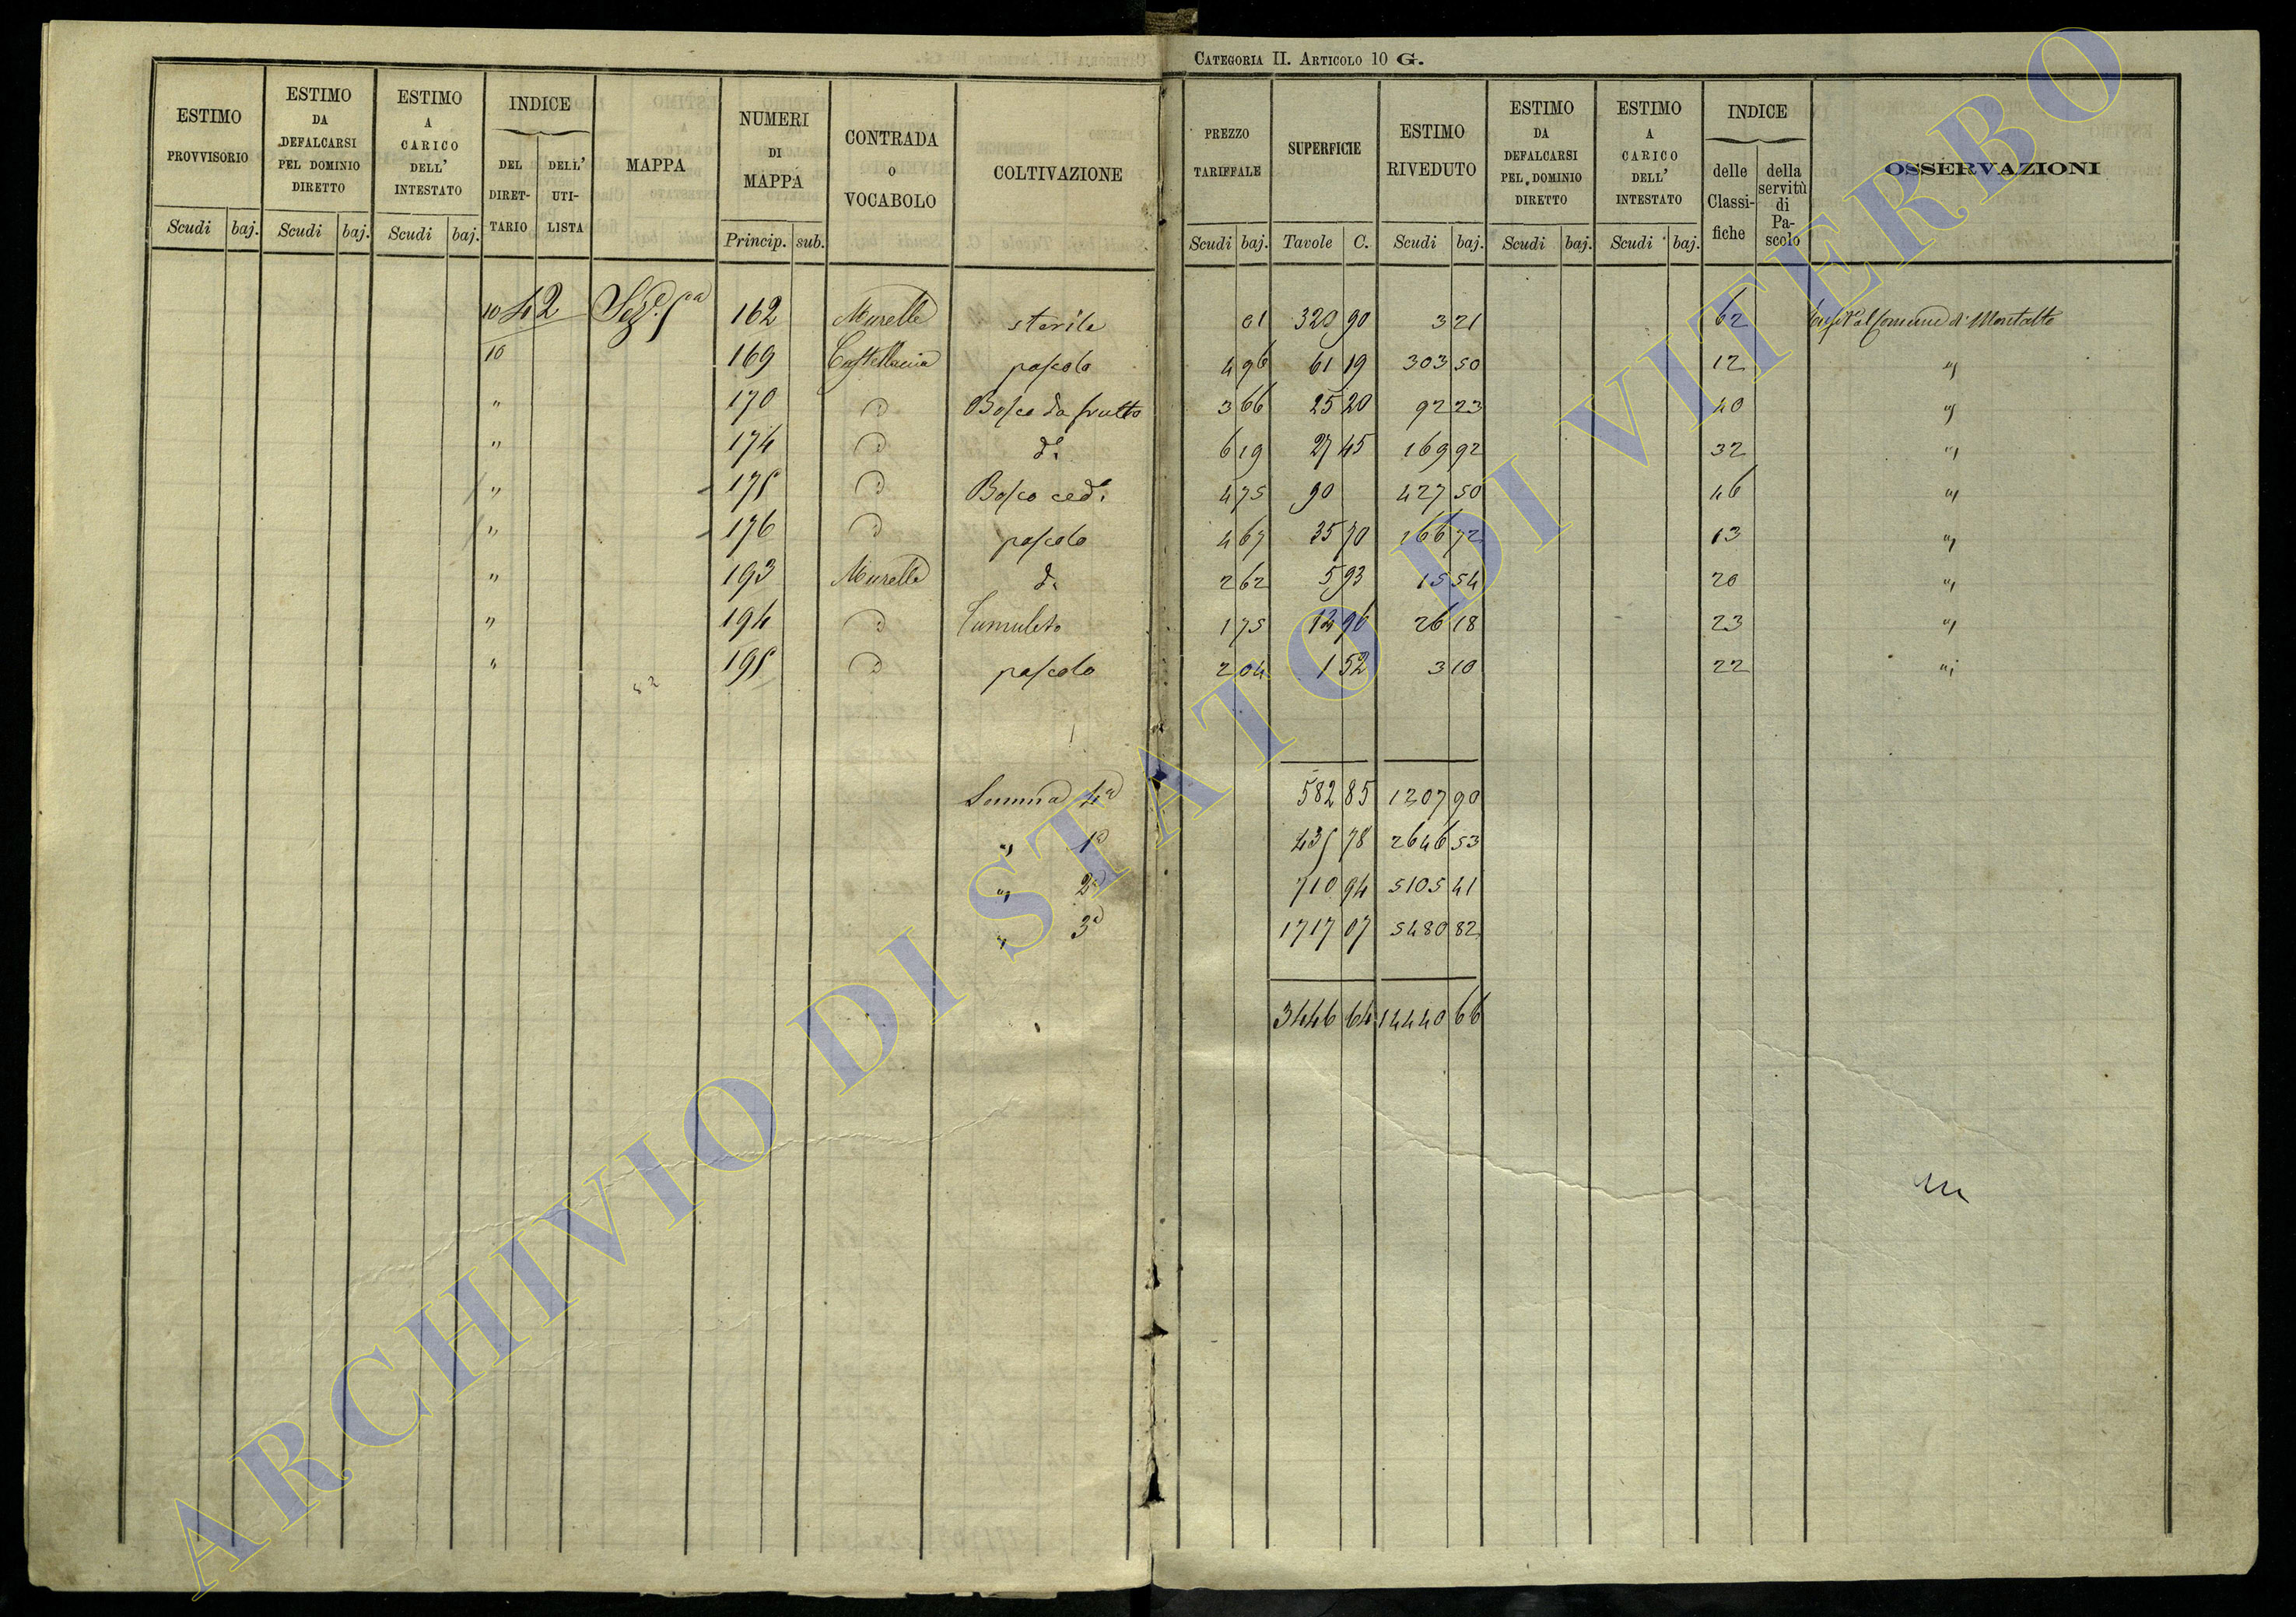 CATEGORIA II. ARTICOLO 10 G.
ESTIMO PROVVISORIO Scudi baj.
ESTIMO DA DEFALCARSI PEL DOMINIO DIRETTO Scudi baj.
ESTIMO A CARICO DELL' INTESTATO Scudi baj.
INDICE DEL DIRET-TARIO DELL' UTI-LISTA
MAPPA
NUMERI DI MAPPA Princip. sub.
CONTRADA O VOCABOLO
COLTIVAZIONE
PREZZO TARIFFALE Scudi baj.
SUPERFICIE Tavole C.
ESTIMO RIVEDUTO Scudi baj.
ESTIMO DA DEFALCARSI PEL DOMINIO DIRETTO Scudi baj.
ESTIMO A CARICO DELL' INTESTATO Scudi baj.
INDICE delle Classi-fiche della servitù di Pa-scolo
OSSERVAZIONI
10 42 Sez.e 5a 162 Murelle sterile 01 320 90 3 21 62 al Comune di Montalto
10 169 Castellaccia pascolo 4 96 61 19 303 50 12 "
" 170 D Bosco da frutto 3 66 25 20 92 23 40 "
" 174 D d.o 6 19 27 45 169 92 32 "
" 175 D Bosco ced. 4 75 90 427 50 46 "
" 176 D pascolo 4 67 35 70 166 72 13 "
" 193 Murelle d. 2 62 5 93 15 54 20 "
" 194 D Tumuleto 1 75 14 96 26 18 23 "
" 195 D pascolo 2 04 1 52 3 10 22 "
52
Somma 4a 582 85 1207 90
" 1a 435 78 2646 53
" 2a 710 94 5105 41
" 3a 1717 07 5480 82
3446 64 14440 66
ARCHIVIO DI STATO DI VITERBO